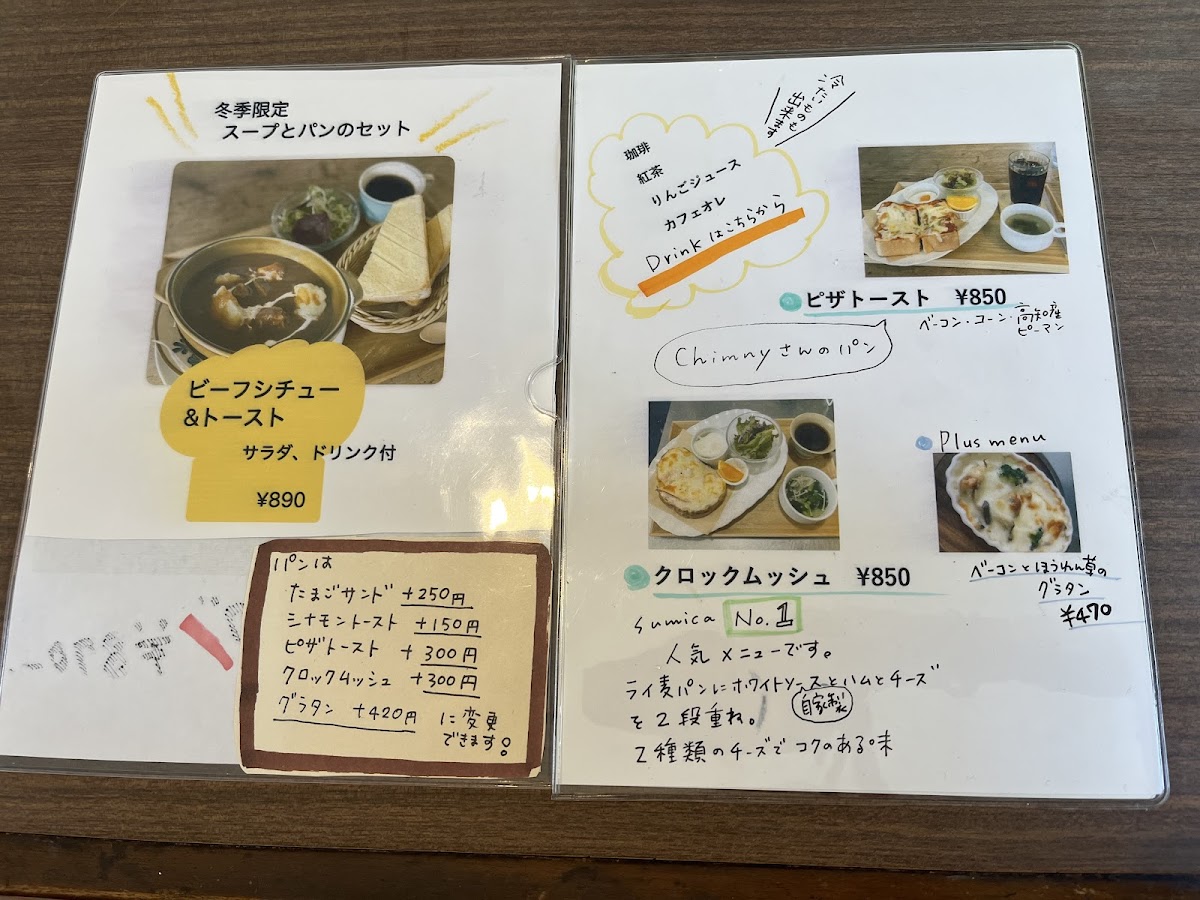 冬季限定
スープとパンのセット
ビーフシチュー
&トースト
サラダ、ドリンク付
¥890
パンは
たまごサンド +250円
シナモントースト +150円
ピザトースト +300円
クロックムッシュ +300円
グラタン +420円
に変更
できます!
冷たいものも
出来ます
珈琲
紅茶
りんごジュース
カフェオレ
Drinkはこちらから
ピザトースト ¥850
ベーコン・コーン・高知産
ピーマン
Chimnyさんのパン
Plus menu
ベーコンとほうれん草の
グラタン
¥470
クロックムッシュ ¥850
sumica No.1
人気メニューです。
ライ麦パンにホワイトソースとハムとチーズ
自家製
を2段重ね。
2種類のチーズでコクのある味